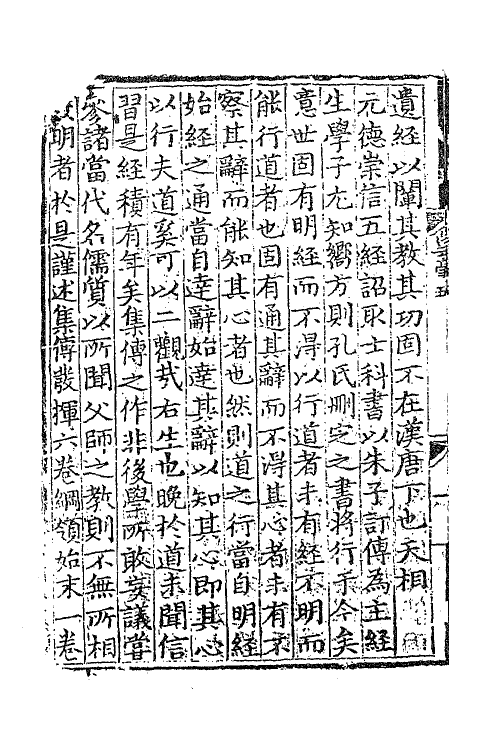 遺經以闡其教其功固不在漢唐下也天相
元德崇信五經詔取士科書以朱子訂傳為主經
生學子尤知嚮方則孔氏刪定之書將行乎今矣
意世固有明經而不得以行道者未有經不明而
能行道者也固有通其辭而不得其心者未有不
察其辭而能知其心者也然則道之行當自明經
始經之通當自達辭始達其辭以知其心即其心
以行夫道奚可以二觀㢤右生也晚於道未聞信
習是經積有年矣集傳之作非後學所敢妄議嘗
參諸當代名儒質以所聞父師之教則不無所相
發明者於是謹述集傳發揮六卷綱領始末一卷